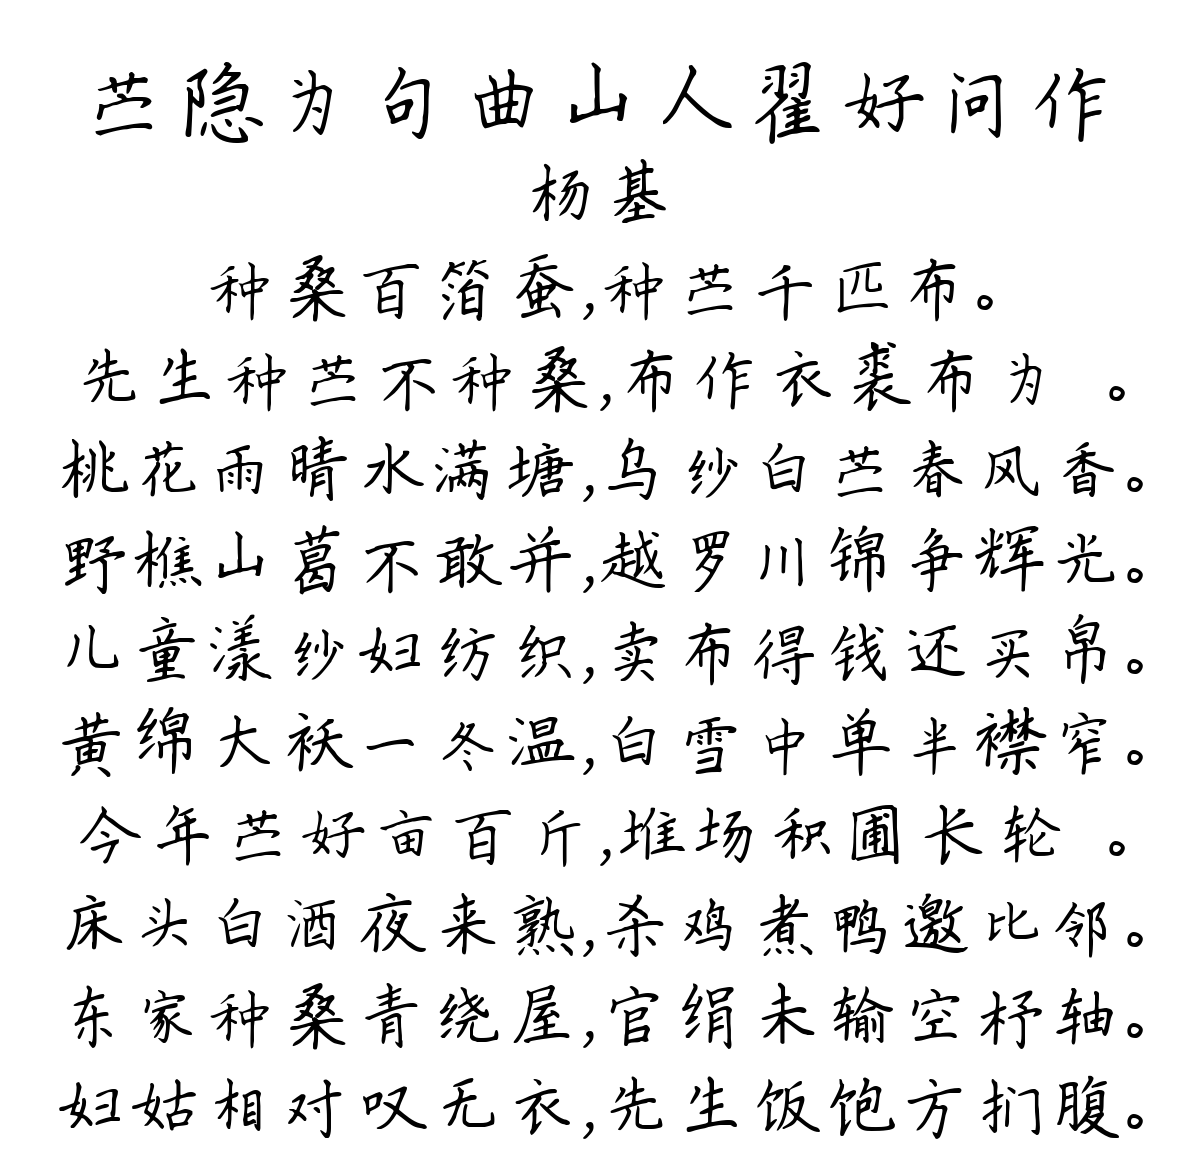 苎隐为句曲山人翟好问作
杨基
种桑百箔蚕,种苎千匹布。
先生种苎不种桑,布作衣裘布为 。
桃花雨晴水满塘,乌纱白苎春风香。
野樵山葛不敢并,越罗川锦争辉光。
儿童漾纱妇纺织,卖布得钱还买帛。
黄绵大袄一冬温,白雪中单半襟窄。
今年苎好亩百斤,堆场积圃长轮 。
床头白酒夜来熟,杀鸡煮鸭邀比邻。
东家种桑青绕屋,官绢未输空杼轴。
妇姑相对叹无衣,先生饭饱方扪腹。